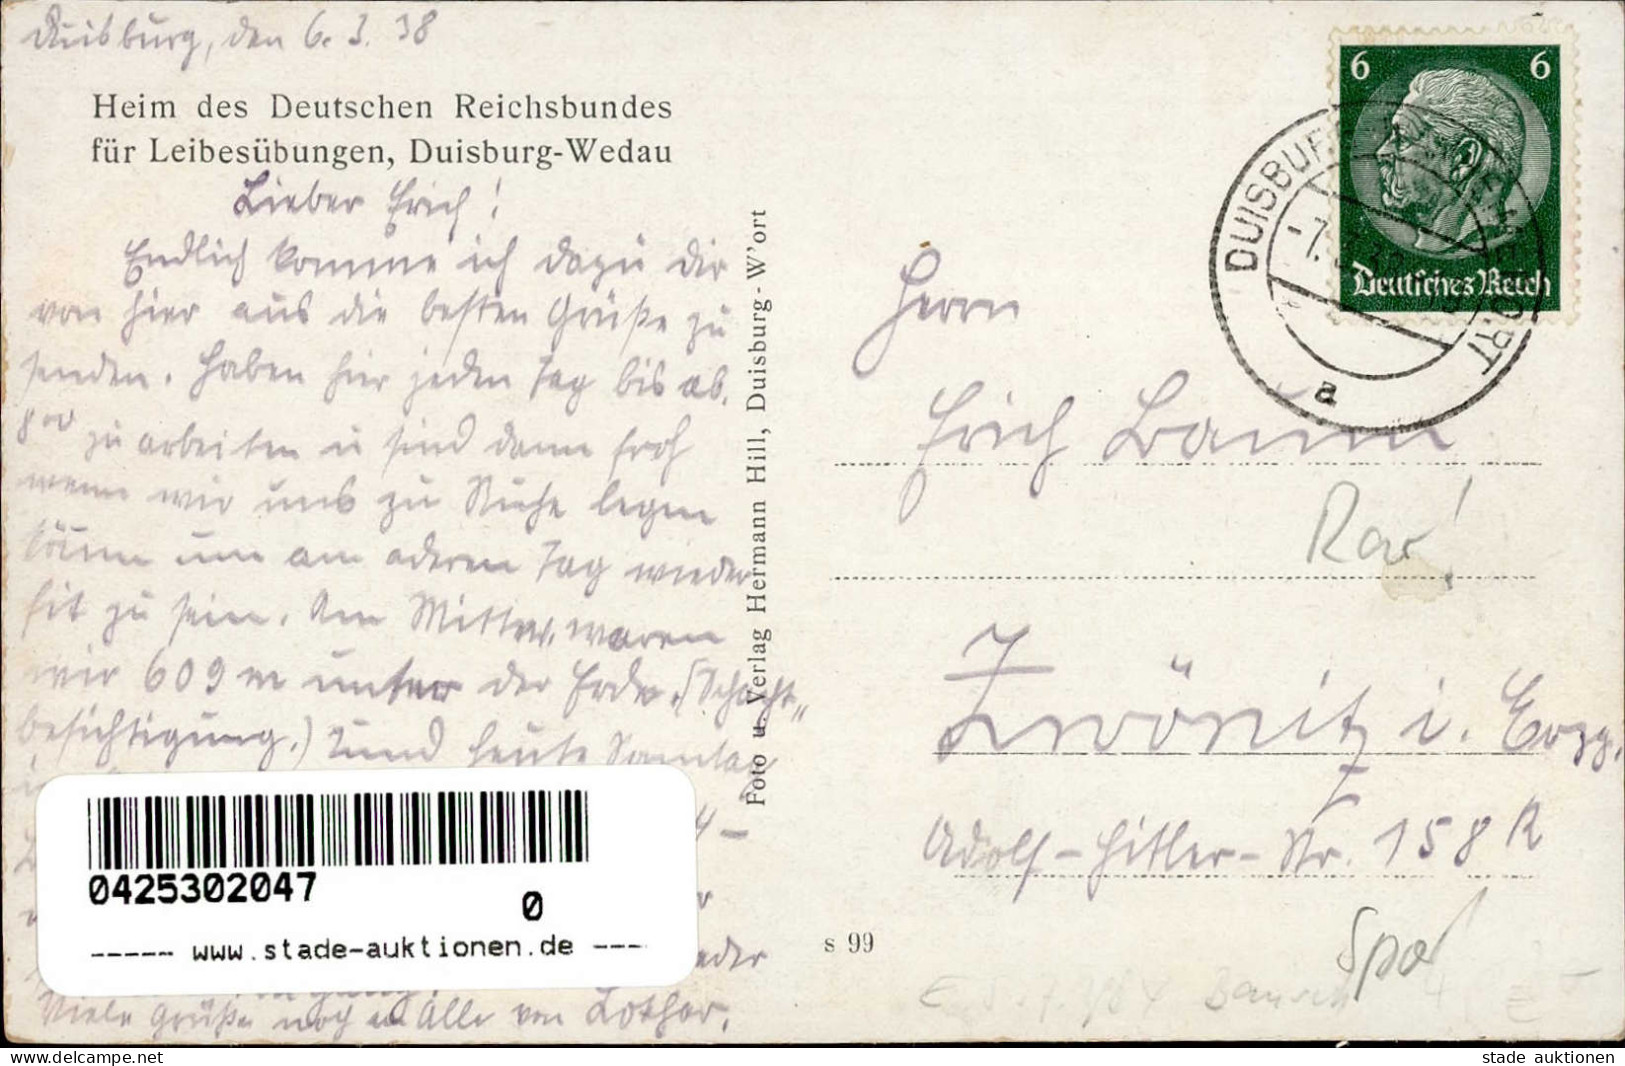 Duisburg, den 6. 3. 38
Heim des Deutschen Reichsbundes
für Leibesübungen, Duisburg-Wedau
Lieber Erich!
Endlich komme ich dazu dir
von hier aus die besten Grüße zu
senden. Haben hier jeden Tag bis ab.
8 00 zu arbeiten u sind dann froh
wenn wir uns zu Ruhe legen
könne um am aderen Tag wieder
fit zu sein. Am Mittw. waren
wir 609 m unter der Erde. (Schacht„
besichtigung.) Und heute Sonntag
Viele Grüße noch an Alle von Lothar.
Foto u. Verlag Hermann Hill, Duisburg-W'ort
6 6
Deutsches Reich
DUISBURG
ORT
-7.3.38
a
Herrn
Erich Baum
Rar!
Zwönitz i. Erzg.
Adolf-Hitler-Str. 158 R
s 99
Spo
0425302047
0
----- www.stade-auktionen.de ----
http://www.ebay.de/str/stadeauktionen
stade auktionen